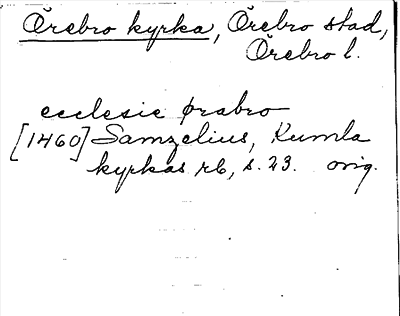 Örebro kyrka, Örebro stad,
Örebro l.
ecclesie ørabro
[1460] Samzelius, Kumla
kyrkas rb, s. 23. orig.